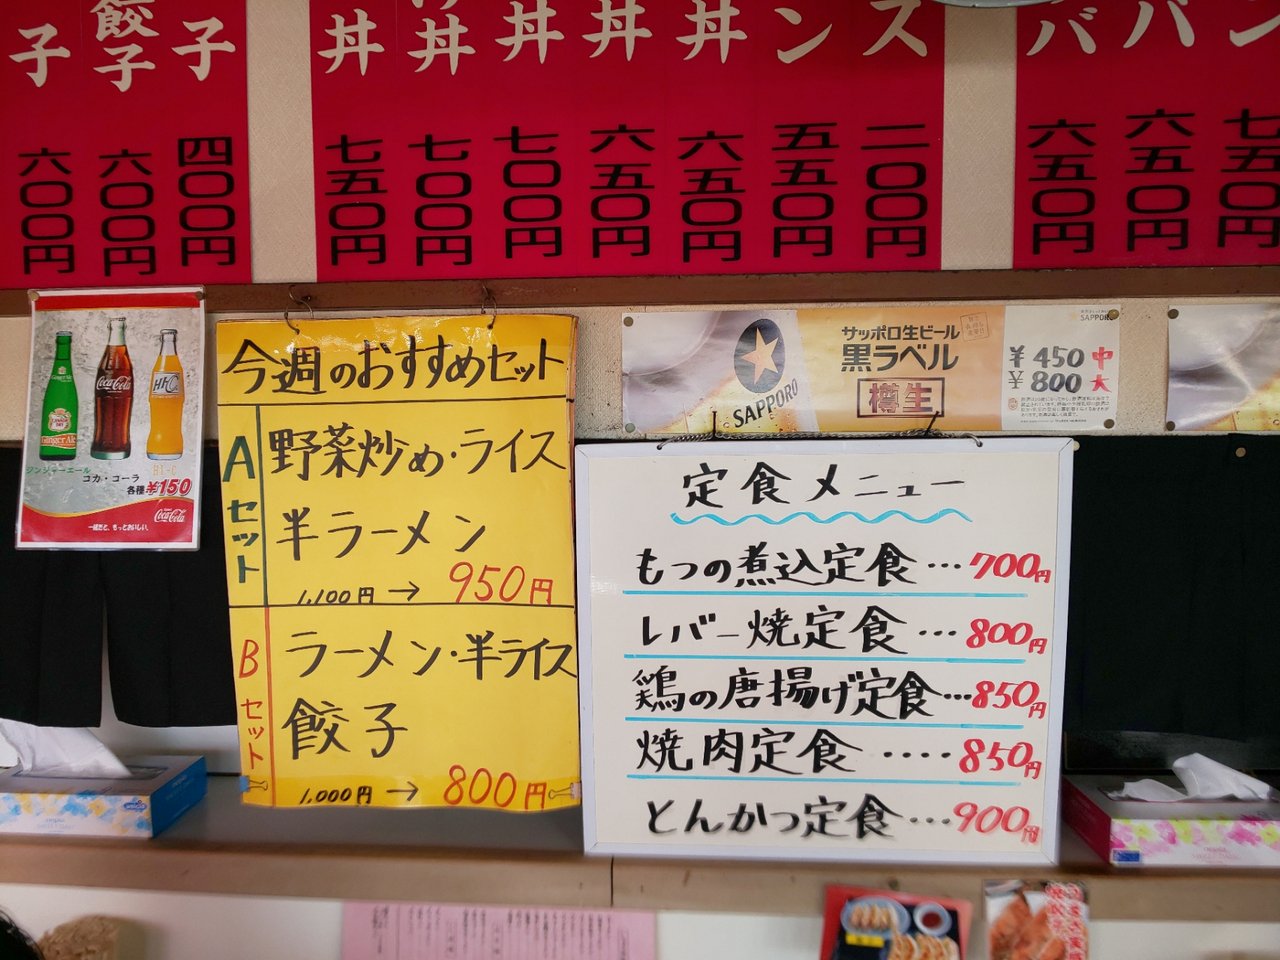 子 六〇〇円
餃子 六〇〇円
子 四〇〇円
丼 七五〇円
丼 七〇〇円
丼 七〇〇円
丼 六五〇円
丼 六五〇円
ンン 五五〇円
ス 二〇〇円
バ 六五〇円
バン 六五〇円
ン 七五〇円
Ginger Ale
Coca-Cola
HI-C
ジンジャーエール
コカ・コーラ
HI-C
各種¥150
一緒だと、もっとおいしい。
Coca-Cola
今週のおすすめセット
Aセット
野菜炒め・ライス
半ラーメン
1,100円→950円
Bセット
ラーメン・半ライス
餃子
1,000円→800円
SAPPORO
サッポロ生ビール
黒ラベル
樽生
SAPPORO
¥450中
¥800大
定食メニュー
もつの煮込定食…700円
レバー焼定食…800円
鶏の唐揚げ定食…850円
焼肉定食‥‥850円
とんかつ定食…900円